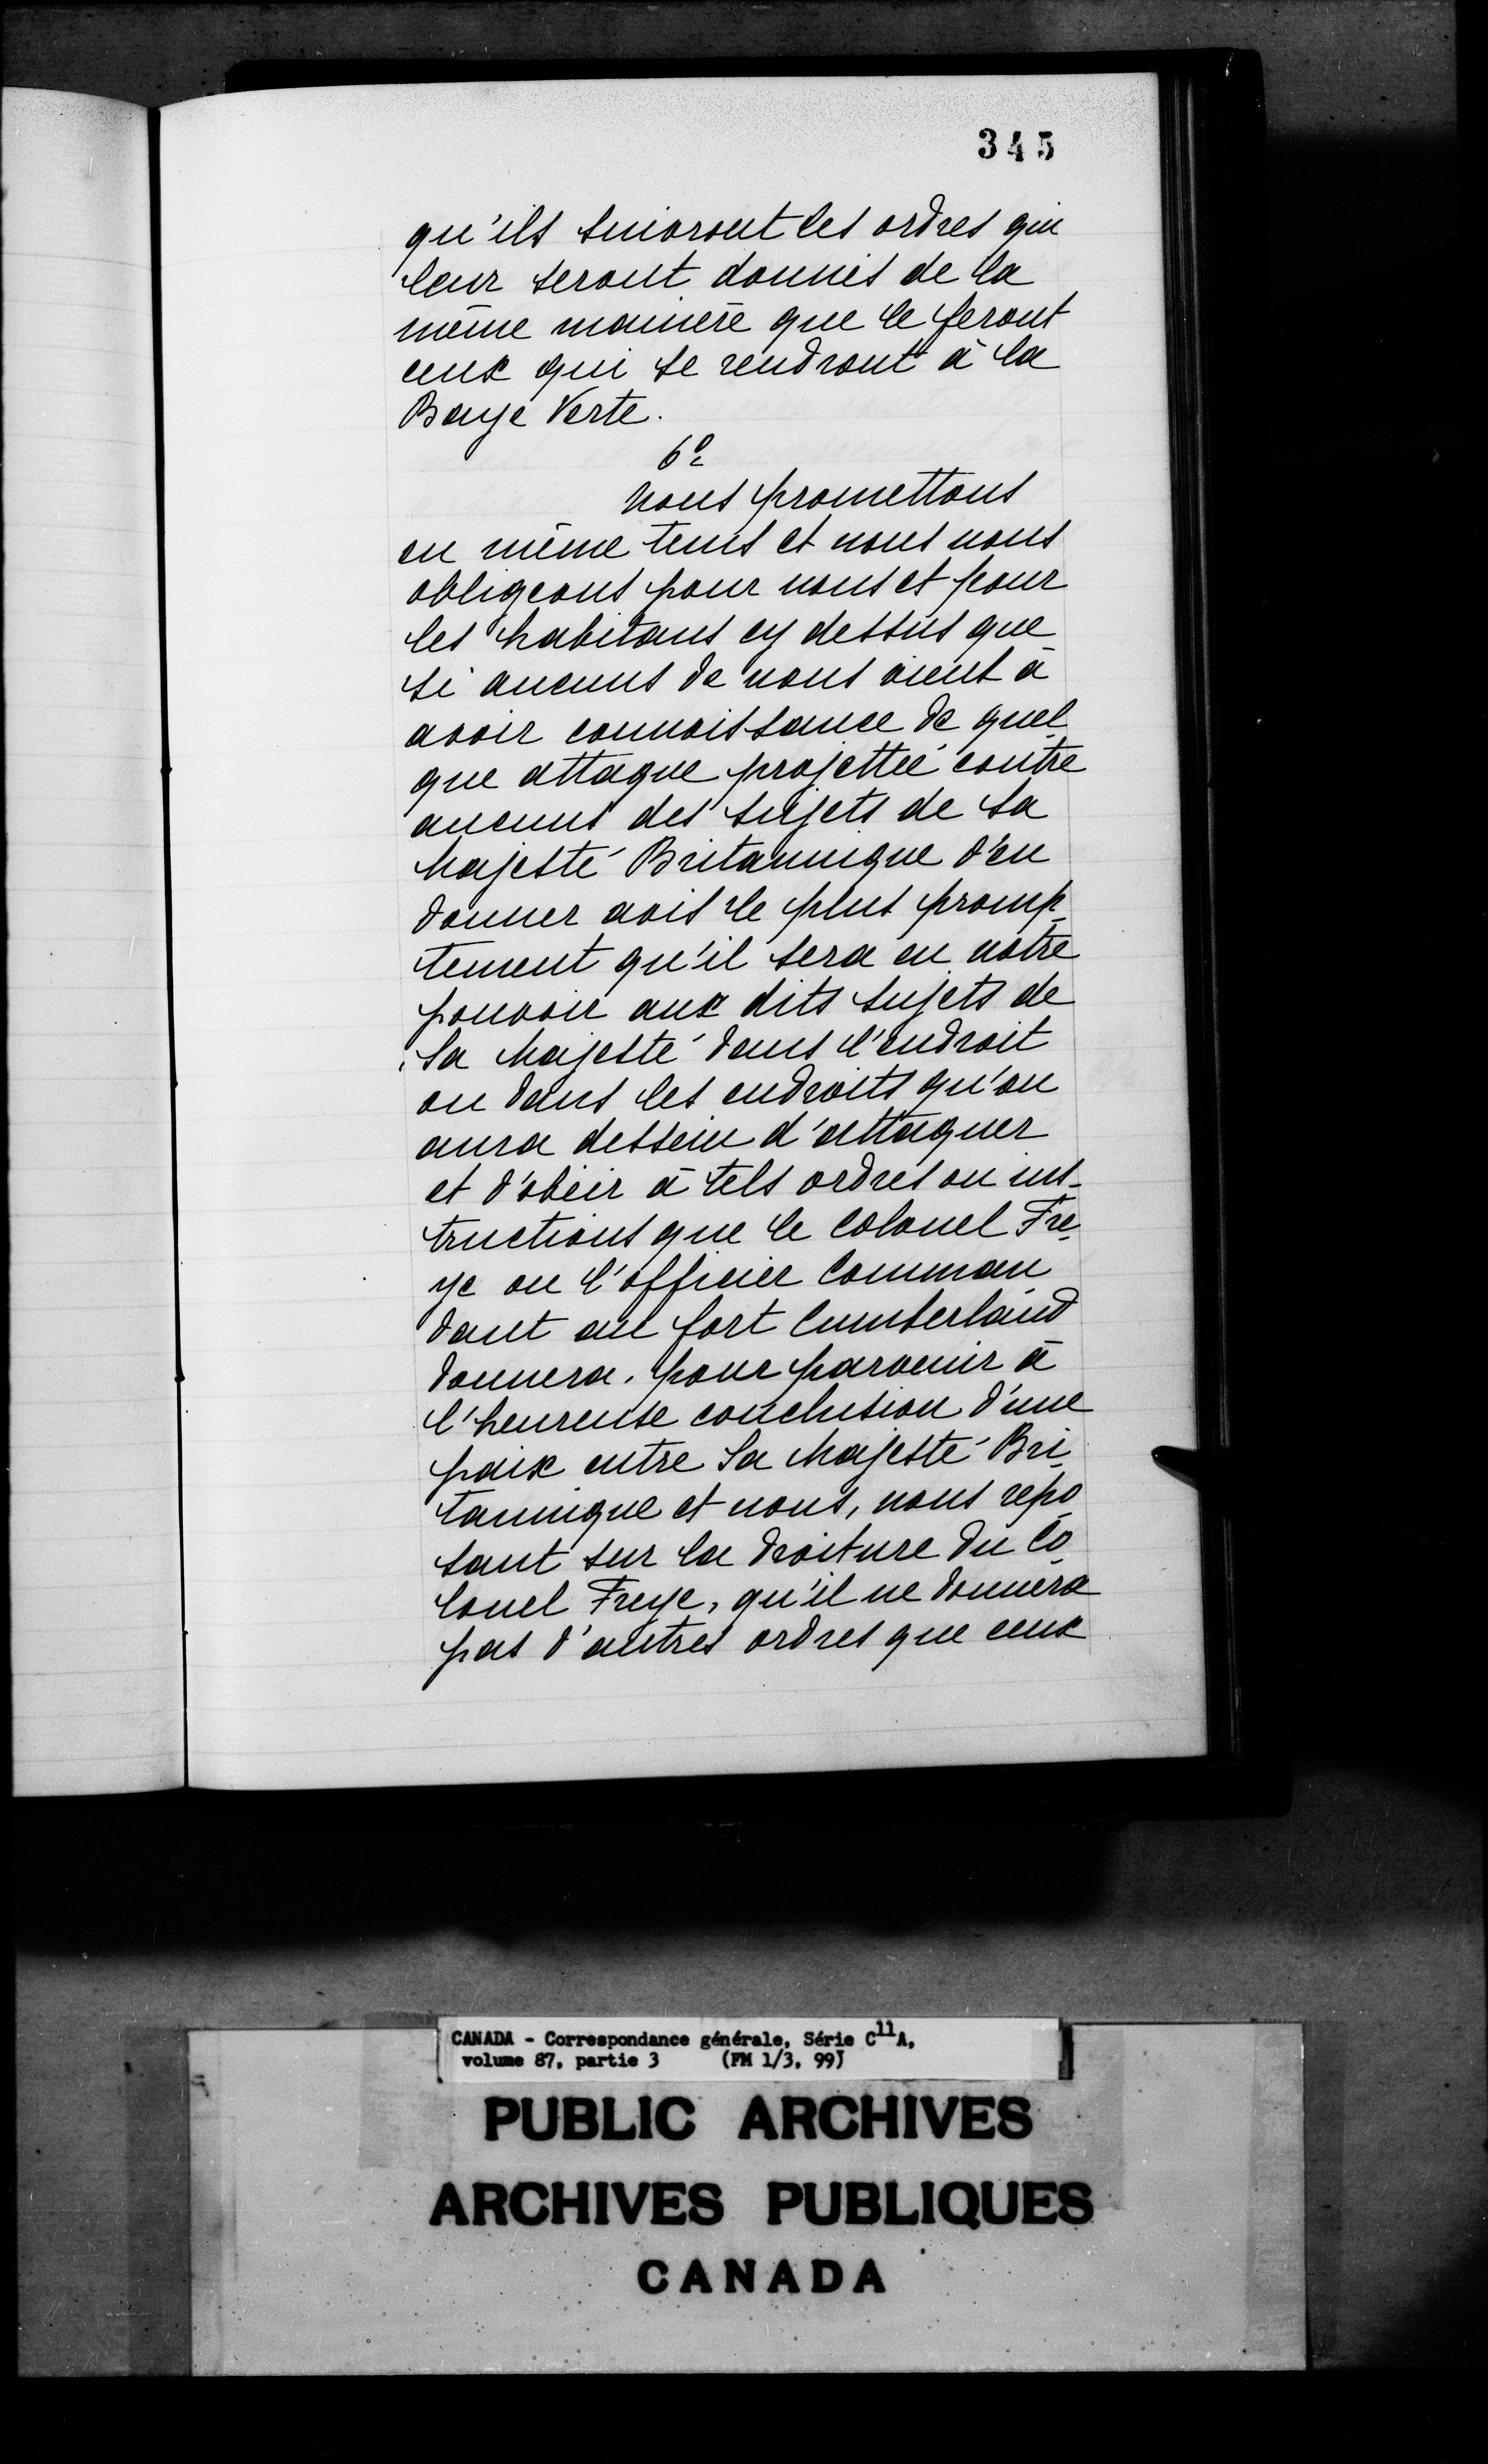 345
qu'ils suivront les ordres qui
leur seront donnés de la
même manière que le feront
ceux qui se rendront à la
Baye Verte.
6º
Nous promettons
en même tems et nous nous
obligeons pour nous et pour
les habitans cy dessus que
si aucuns de nous vient à
avoir connoissance de quel
que attaque projettée contre
aucuns des sujets de Sa
Majesté Britannique d'en
donner avis le plus promp
tement qu'il sera en notre
pouvoir aux dits sujets de
Sa Majesté dans l'endroit
ou dans les endroits qu'on
aura dessein d'attaquer
et d'obéir à tels ordres ou ins-
tructions que le Colonel Fre
ye ou l'officier Comman
dant au fort Cumberland
donnera, pour parvenir à
l'heureuse conclusion d'une
paix entre Sa Majesté Bri
tannique et nous, nous repo
sant sur la droiture du Co
lonel Freye, qu'il ne donnera
pas d'autres ordres que ceux
CANADA - Correspondance générale, Série C11A,
volume 87, partie 3 (FM 1/3, 99)
PUBLIC ARCHIVES
ARCHIVES PUBLIQUES
CANADA